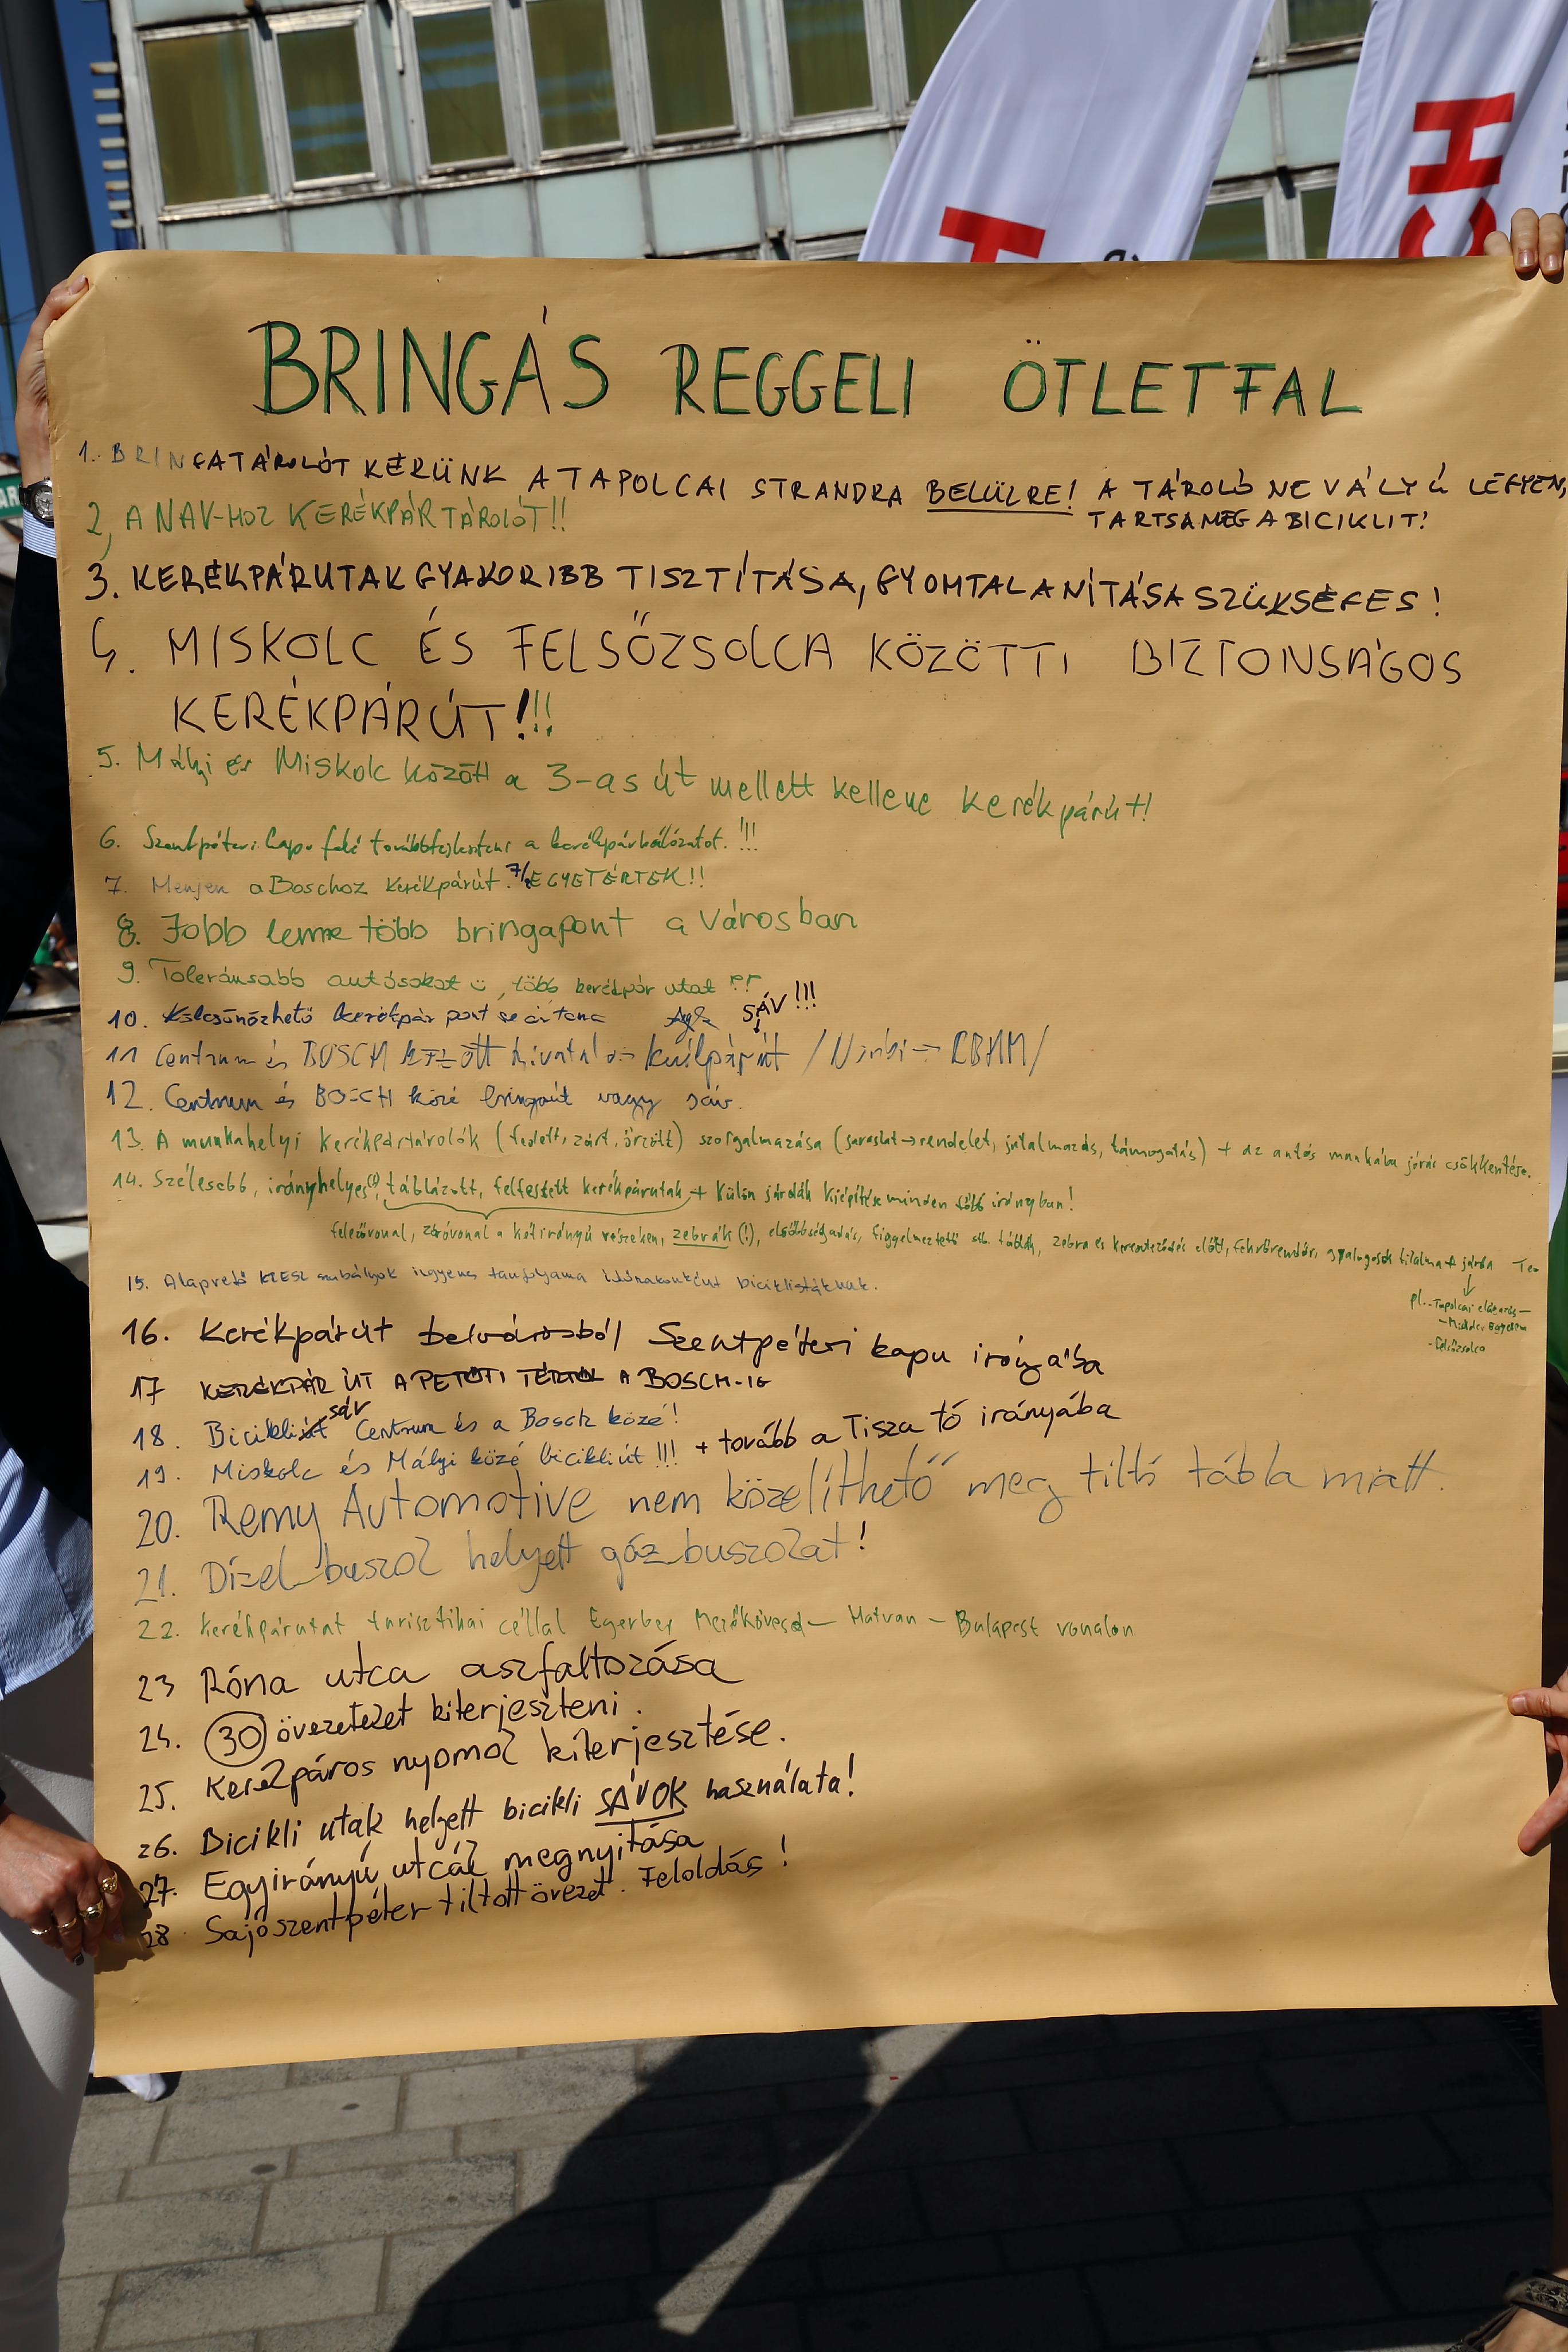 BRINGÁS REGGELI ÖTLETFAL
1. BRINGATÁROLÓT KÉRÜNK A TAPOLCAI STRANDRA BELÜLRE! A TÁROLÓ NE VÁLYÚ LEGYEN,
TARTSA MEG A BICIKLIT!
2, A NAV-HOZ KERÉKPÁR TÁROLÓT!!
3. KERÉKPÁRUTAK GYAKORIBB TISZTÍTÁSA, GYOMTALANÍTÁSA SZÜKSÉGES!
4. MISKOLC ÉS FELSŐZSOLCA KÖZÖTTI BIZTONSÁGOS
KERÉKPÁRÚT!!!
5. Mályi és Miskolc között a 3-as út mellett kellene kerékpárút!
6. Szentpéteri kapu felé továbbfejleszteni a kerékpárhálózatot. !!!
7. Menjen a Boschoz kerékpárút. 7/2 EGYETÉRTEK!!
8. Jobb lenne több bringapont a városban
9. Toleránsabb autósokat, több kerékpár utat
10. Kölcsönözhető kerékpár pont
SÁV!!!
11 Centrum és BOSCH között /Nórbi → RBHM/
12. Centrum és BOSCH közé bringaút vagy sáv.
13. A munkahelyi kerékpártárolók (fedett, zárt, őrzött) szorgalmazása (javaslat → rendelet, jutalmazás, támogatás) + az autós munkába járás csökkentése.
14. Szélesebb, irányhelyes(!), táblázott, felfestett kerékpárutak + külön járdák kiépítése minden több irányban!
felezővonal, záróvonal a kétirányú részeken, zebrák (!), elsőbbségadás, figyelmeztető stb. táblák, zebra és kereszteződés előtt, fekvőrendőr, gyalogosok tilalma + járda
pl. - Tapolcai elágazás -
- Miskolc Egyetem
- Felsőzsolca
15. Alapvető KRESZ szabályok ingyenes tanfolyama időnakonként biciklistáknak.
16. Kerékpárút belvárosból Szentpéteri kapu irányába
17 KERÉKPÁR ÚT A PETŐFI TÉRTŐL A BOSCH-IG
sáv
18. Bicikliút Centrum és a Bosch közé!
19. Miskolc és Mályi közé bicikliút!!! + tovább a Tisza tó irányába
20. Remy Automotive nem közelíthető meg tiltó tábla miatt.
21. Dízel buszok helyett gáz buszokat!
22. Kerékpárutat turisztikai céllal Mezőkövesd - Hatvan - Budapest vonalon
23 Róna utca aszfaltozása
24. 30 övezeteket kiterjeszteni.
25. Kerékpáros nyomok kiterjesztése.
26. Bicikli utak helyett bicikli SÁVOK használata!
27. Egyirányú utcák megnyitása
28 Sajószentpéter tiltott övezet. Feloldás!